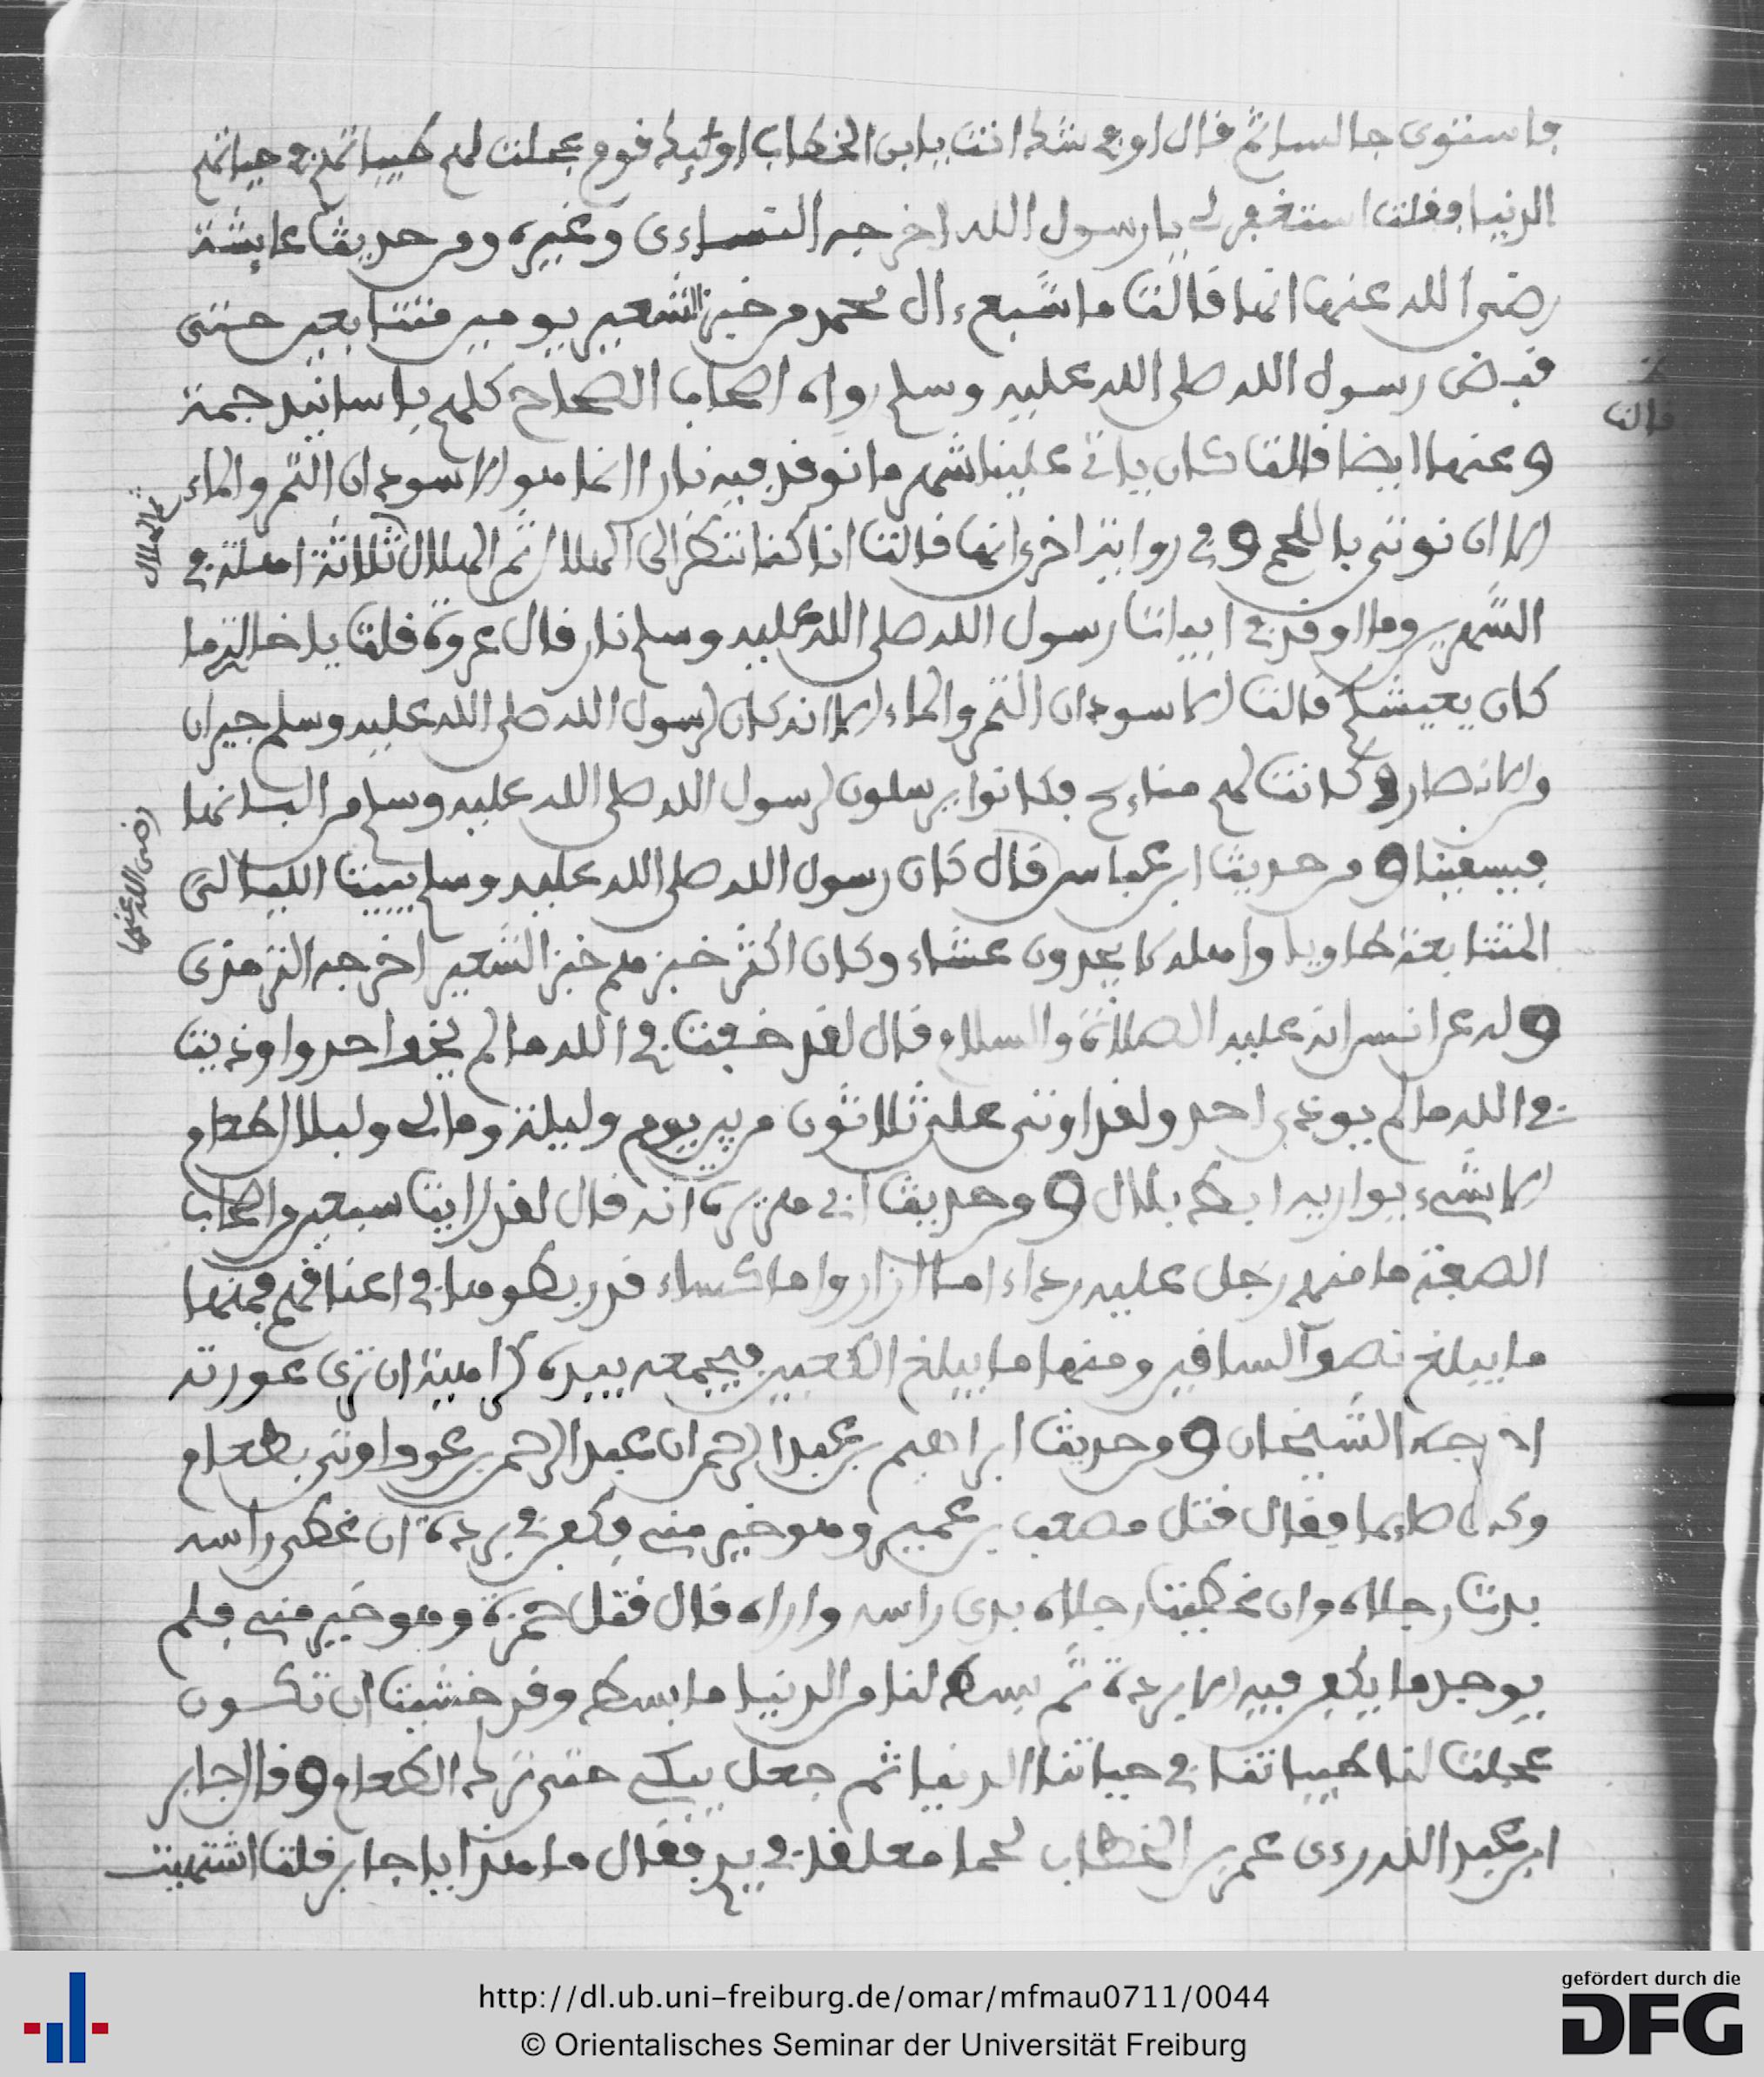 فاستوى جالسا ثم قال او في شك انت يا ابن الخطاب اوليك قوم عجلت لهم طيباتهم في حياتهم
الدنيا فقلت استغفر لي يا رسول الله اخرجه النساءى وغيره ومن حديث عايشة
رضى الله عنها انها قالت ما شبع ءال محمد من خبز الشعير يومين متتابعين حتى
قبض رسول الله صلى الله عليه وسلم رواه اصحاب الصحاح كلهم باسانيد جمة
وعنها ايضا قالت كان ياتي علينا شهر ما نوقد فيه نارا انما هو الاسودان التمر والماء
الا ان نوتى باللحم و في رواية اخرى انها قالت انا كنا ننظر الى الهلال ثم الهلال ثلاثة اهلة في
الشهرين وما اوقد في ابيات رسول الله صلى الله عليه وسلم نار قال عروة قلت يا خالة ما
كان يعيشكم قالت الاسودان التمر والماء الا انه كان لرسول الله صلى الله عليه وسلم جيران
من الانصار وكانت لهم منايح فكانوا يرسلون لرسول الله صلى الله عليه وسلم من البانها
فيسقينا و من حديث ابن عباس قال كان رسول الله صلى الله عليه وسلم يبيت الليالى
المتتابعة طاويا واهله لا يجدون عشاء وكان اكثر خبزهم خبز الشعير اخرجه الترمذى
و له عن انس انه عليه الصلاة والسلام قال لقد خفت في الله ما لم يخف احد واوذيت
في الله ما لم يوذى احد ولقد اوتى علي ثلاثون من بين يوم وليلة ومالي ولبلال طعام
الا شيء يواريه ابط بلال و من حديث ابي هريرة انه قال لقد رايت سبعين من اصحاب
الصفة ما منهم رجل عليه رداء اما ازار واما كساء قد ربطوها في اعناقهم فمنها
ما يبلغ نصف الساقين ومنها ما يبلغ الكعبين فيجمعه بيده كراهية ان ترى عورته
اخرجه الشيخان و من حديث ابراهيم بن عبد الرحمن ان عبد الرحمن بن عوف اوتى بطعام
وكان صايما فقال قتل مصعب بن عمير وهو خير مني فكفن في بردة ان غطي راسه
بدت رجلاه وان غطيت رجلاه بدى راسه واراه قال قتل حمزة وهو خير مني فلم
يوجد ما يكفن فيه الا بردة ثم بسط لنا من الدنيا ما بسط وقد خشيت ان تكون
عجلت لنا طيباتنا في حياتنا الدنيا ثم جعل يبكي حتى ترك الطعام و قال جابر
ابن عبد الله رءى عمر بن الخطاب لحما معلقا في يدي فقال ما هذا يا جابر قلت اشتهيت
قالت
ثم الهلال
رضى الله عنهما
http://dl.ub.uni-freiburg.de/omar/mfmau0711/0044
© Orientalisches Seminar der Universität Freiburg
gefördert durch die
DFG